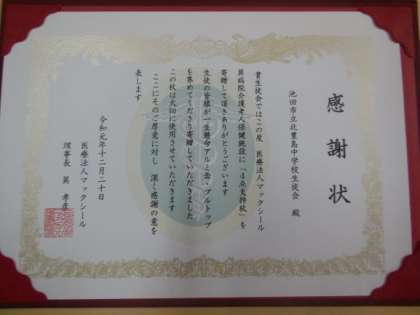 感謝状
池田市立北豊島中学校生徒会 殿
貴生徒会ではこの度 医療法人マックシール
巽病院介護老人保健施設に「4点支持杖」を
寄贈して頂きありがとうございます
生徒の皆様が一生懸命アルミ缶・プルトップ
を集めてくださり寄贈していただきました
この杖は大切に使用させていただきます
ここにそのご厚意に対し 深く感謝の意を
表します
令和元年十二月二十日
医療法人マックシール
理事長 巽 孝彦